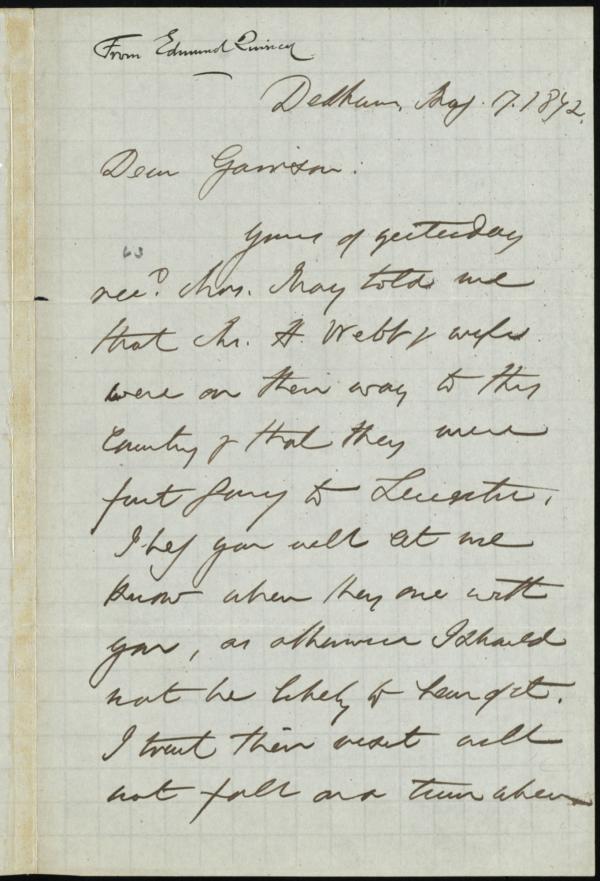 From Edmund Quincy
Dedham, May. 7. 1872.
Dear Garrison:
Yours of yesterday
rec?. Mrs. May told me
that Mr. A. Webb & wife
were on their way to this
Country & that they were
first going to Leicester.
I beg you will let me
know when they are with
you, as otherwise I should
not be likely to hear of it.
I trust their visit will
not fall on a time when